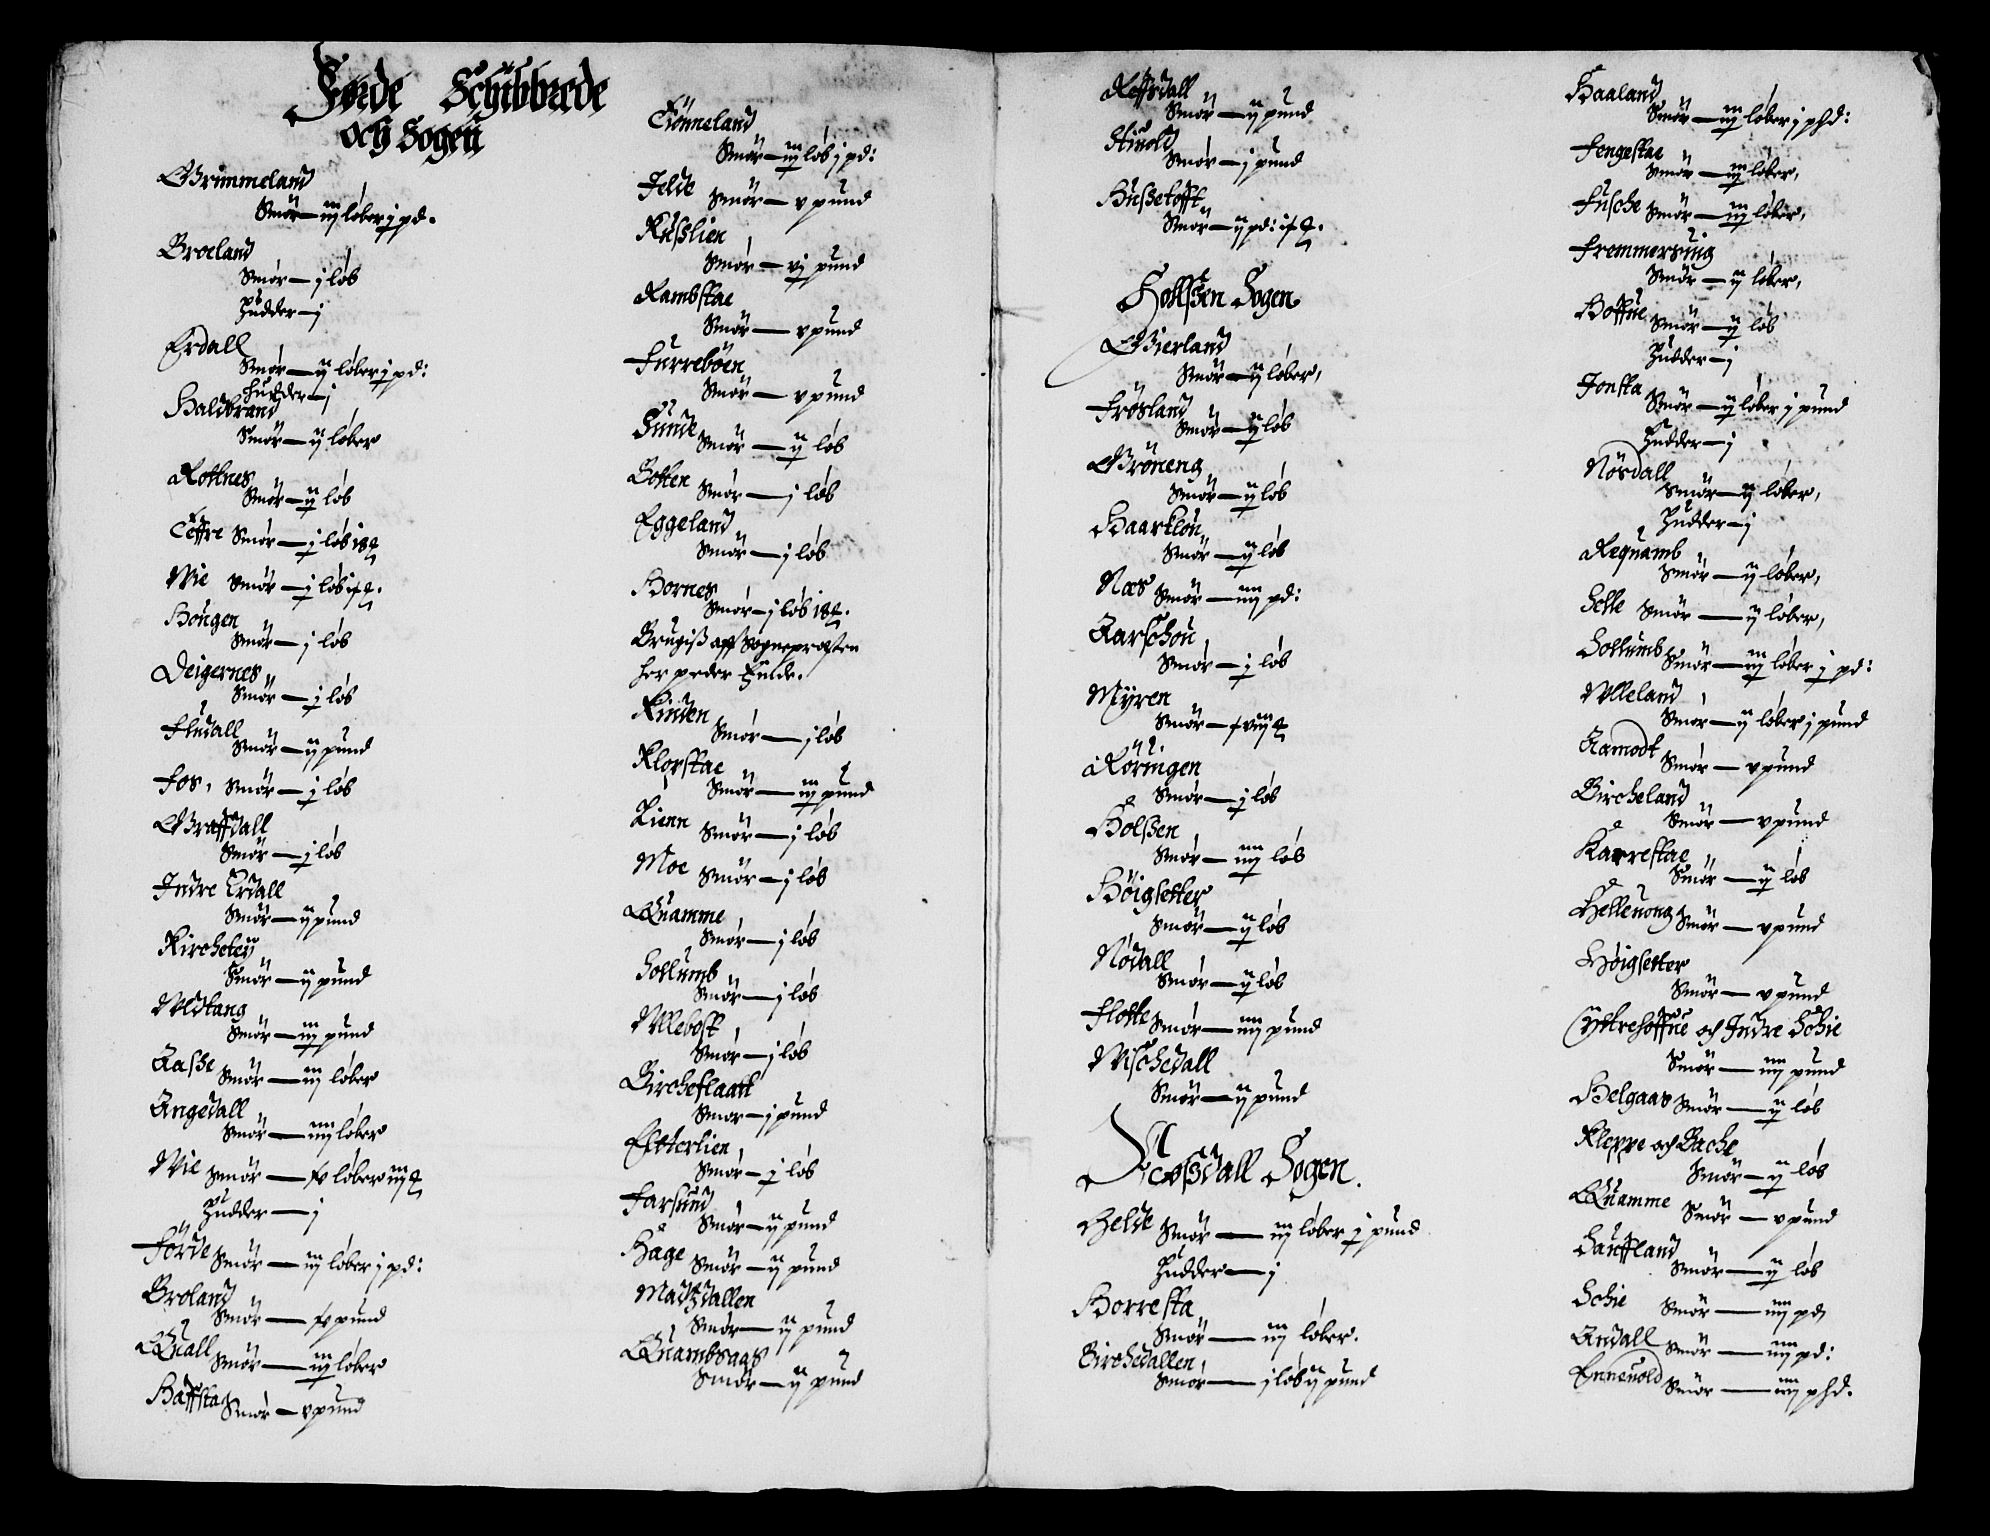 Førde Schibbrede
och Sogen
Grimmeland
Smør — iij løber j pd.
Groeland
Smør — j løb
Hudder — j
Erdall
Smør — ij løber j pd:
Hudder — j
Haldbrand
Smør — ij løber
Rottnes
Smør — ij løb
Teffre Smør — j løb 18
Wie Smør — j løb
Hougen
Smør — j løb
Deigernes
Smør — j løb
Fludall
Smør — ij pund
Fos, Smør — j løb
Graffdall
Smør — j løb
Indre Erdall
Smør — ij pund
Kircheteÿ
Smør — ij pund
Smør — iij pund
Aasße Smør — iij løber
Angedall
Smør — iiij løber
Wie Smør — løber
Hudder — j
Førde Smør — iij løber j pd:
Broland
Smør — pund
Quall
Smør — iij løber
Haffsta
Smør — v pund
Tiønneland
Smør — iij løb j pd:
Jelde Smør — v pund
Kußlien
Smør — vj pund
Rambstae
Smør — v pund
Furrebøen
Smør — v pund
Sunde Smør — ij løb
Botten Smør — j løb
Eggeland
Smør — j løb
Hornes
Smør — j løb 18
Brugiß aff Sognepræsten
her peder Finde.
Kinden
Smør — j løb
Klopstae
Smør — iij pund
Lienn Smør — j løb
Moe Smør — j løb
Quamme
Smør — j løb
Sollumb
Smør — j løb
Ullebost
Smør — j løb
Bircheflaatt
Smør — j pund
Etterlien
Smør — j løb
Farsund
Smør — ij pund
Hage Smør — ij pund
Madßdallen
Smør — ij pund
Quambsaas
Smør — ij pund
Reffsdall
Smør — ij pund
Smør — j pund
Hußetofft
Smør — ij pd:
Hollßen Sogen
Gierland
Smør — ij løber,
Frøsland
Smør — ij løb
Grøneng
Smør — ij løb
Haarklou
Smør — ij løb
Næs Smør — iiij pd:
Aarschou
Smør — j løb
Mÿren
Smør —
Røringen
Smør — j løb
Holßen
Smør — iiij løb
Høigsetter
Smør — ij løb
Nødall
Smør — ij løb
Flotte Smør — iiij pund
Wischedall
Smør — ij pund
Neoßdall Sogen.
Helde Smør — iij løber j pund
Hudder — j
Horresta
Smør — iij løber.
Birchedallen
Smør — j løb ij pund
Haaland
Smør — iij løber j phd:
Fengestae
Smør — iij løber,
Fusche Smør — iij løber,
Fremmersuig
Smør — ij løber,
Hoffue
Smør — ij løb
Hudder — j
Jonsta
Smør — ij løber j pund
Hudder — j
Nøsdall
Smør — ij løber,
Hudder — j
Requamb
Smør — ij løber,
Selle Smør — ij løber,
Sollumb
Smør — iij løber j pd:
Ulleland
Smør — ij løber j pund
Aamodt
Smør — v pund
Bircheland
Smør — v pund
Karrestae
Smør — ij løb
Helleuong Smør — v pund
Høigsetter
Smør — v pund
Ÿttrehoffue och Indre Schie
Smør — iiij pund
Helgaas Smør — ij løb
Kleppe och Bache
Smør — ij løb
Quamme Smør — v pund
Sauffland
Smør — ij løb
Schie Smør — iiij pd
Andall Smør — iiij pd:
Enneuold Smør — iiij phd.